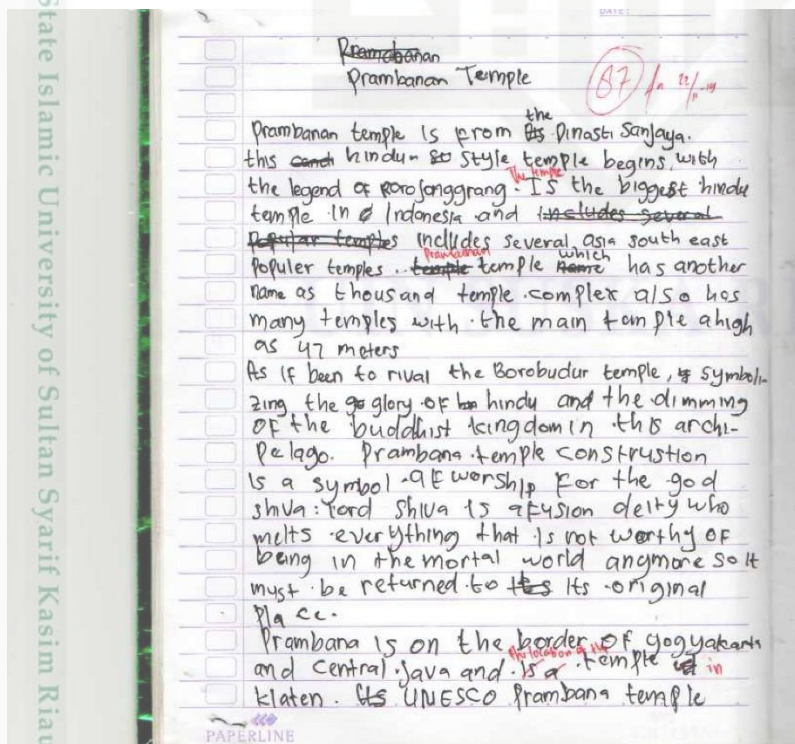 State Islamic University of Sultan Syarif Kasim Riau
DATE:
Pramabanan
Prambanan Temple
87
22/11-19
the
Prambanan temple is from Its Dinasti Sanjaya.
this candi hindu st style temple begins with
The temple
the legend of Roro Jonggrang. Is the biggest hindu
temple in Indonesia and includes several
Popular temples includes several asia south east
Prambanan which
Populer temples. temple temple Name has another
name as thousand temple complex also has
many temples with the main temple ahigh
as 47 meters
As if been to rival the Borobudur temple, symboli-
zing the go glory of hindu and the dimming
of the buddhist kingdom in this archi-
pelago. Prambana temple construstion
is a symbol of worship for the god
shiva: lord shiva is afusion deity who
melts everything that is not worthy of
being in the mortal world angmore so it
must be returned to its its original
place.
Prambana is on the border of yogyakarta
the location of the
and central java and is a temple in
klaten. Its UNESCO Prambana temple
PAPERLINE